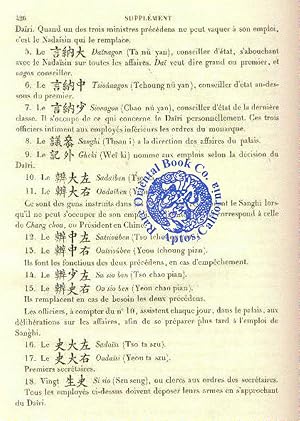 426 SUPPLÉMENT
Daïri. Quand un des trois ministres précédens ne peut vaquer à son emploi,
c'est le Nadaïsin qui le remplace.
5. Le 言納大 Daïnagon (Ta nǔ yan), conseiller d'état, s'abouchant
avec le Nadaïsin sur toutes les affaires. Daï veut dire grand ou premier, et
nagon conseiller.
6. Le 言納中 Tsiounagon (Tchoung nǔ yan), conseiller d'état au-des-
sous du premier.
7. Le 言納少 Sionagon (Chao nǔ yan), conseiller d'état de la dernière
classe. Il s'occupe de ce qui concerne le Daïri personnellement. Ces trois
officiers intiment aux employés inférieurs les ordres du monarque.
8. Le 議參 Sanghi (Thsan i) a la direction des affaires du palais.
9. Le 記外 Gheki (Weï ki) nomme aux emplois selon la décision du
Daïri.
10. Le 辨大左 Sadaïben
11. Le 辨大右 Oudaïben
Ce sont des gens instruits dans le Sanghi lors-
qu'il ne peut s'occuper de son emploi correspond à celle
de Chang chou, ou Président en Chine
12. Le 辨中左 Satsiouben (Tso tchoung
13. Le 辨中右 Outsiouben (Yeou tchoung pian).
Ils font les fonctions des deux précédens, en cas d'empêchement.
14. Le 辨少左 Sa sco ben (Tso chao pian).
15. Le 辨少右 Ou sio ben (Yeou chao pian).
Ils remplacent en cas de besoin les deux précédens.
Les officiers, à compter du n° 10, assistent chaque jour, dans le palais, aux
délibérations sur les affaires, afin de se préparer plus tard à l'emploi de
Sanghi.
16. Le 史大左 Sadaïsi (Tso ta szu).
17. Le 史大右 Oudaïsi (Yeou ta szu).
Premiers secrétaires.
18. Vingt 生史 Si sio (Szu seng), ou clercs aux ordres des secrétaires.
Tous les employés ci-dessus doivent déposer leurs armes en s'approchant
du Daïri.
Rare Oriental Book Co.
Aptos, California